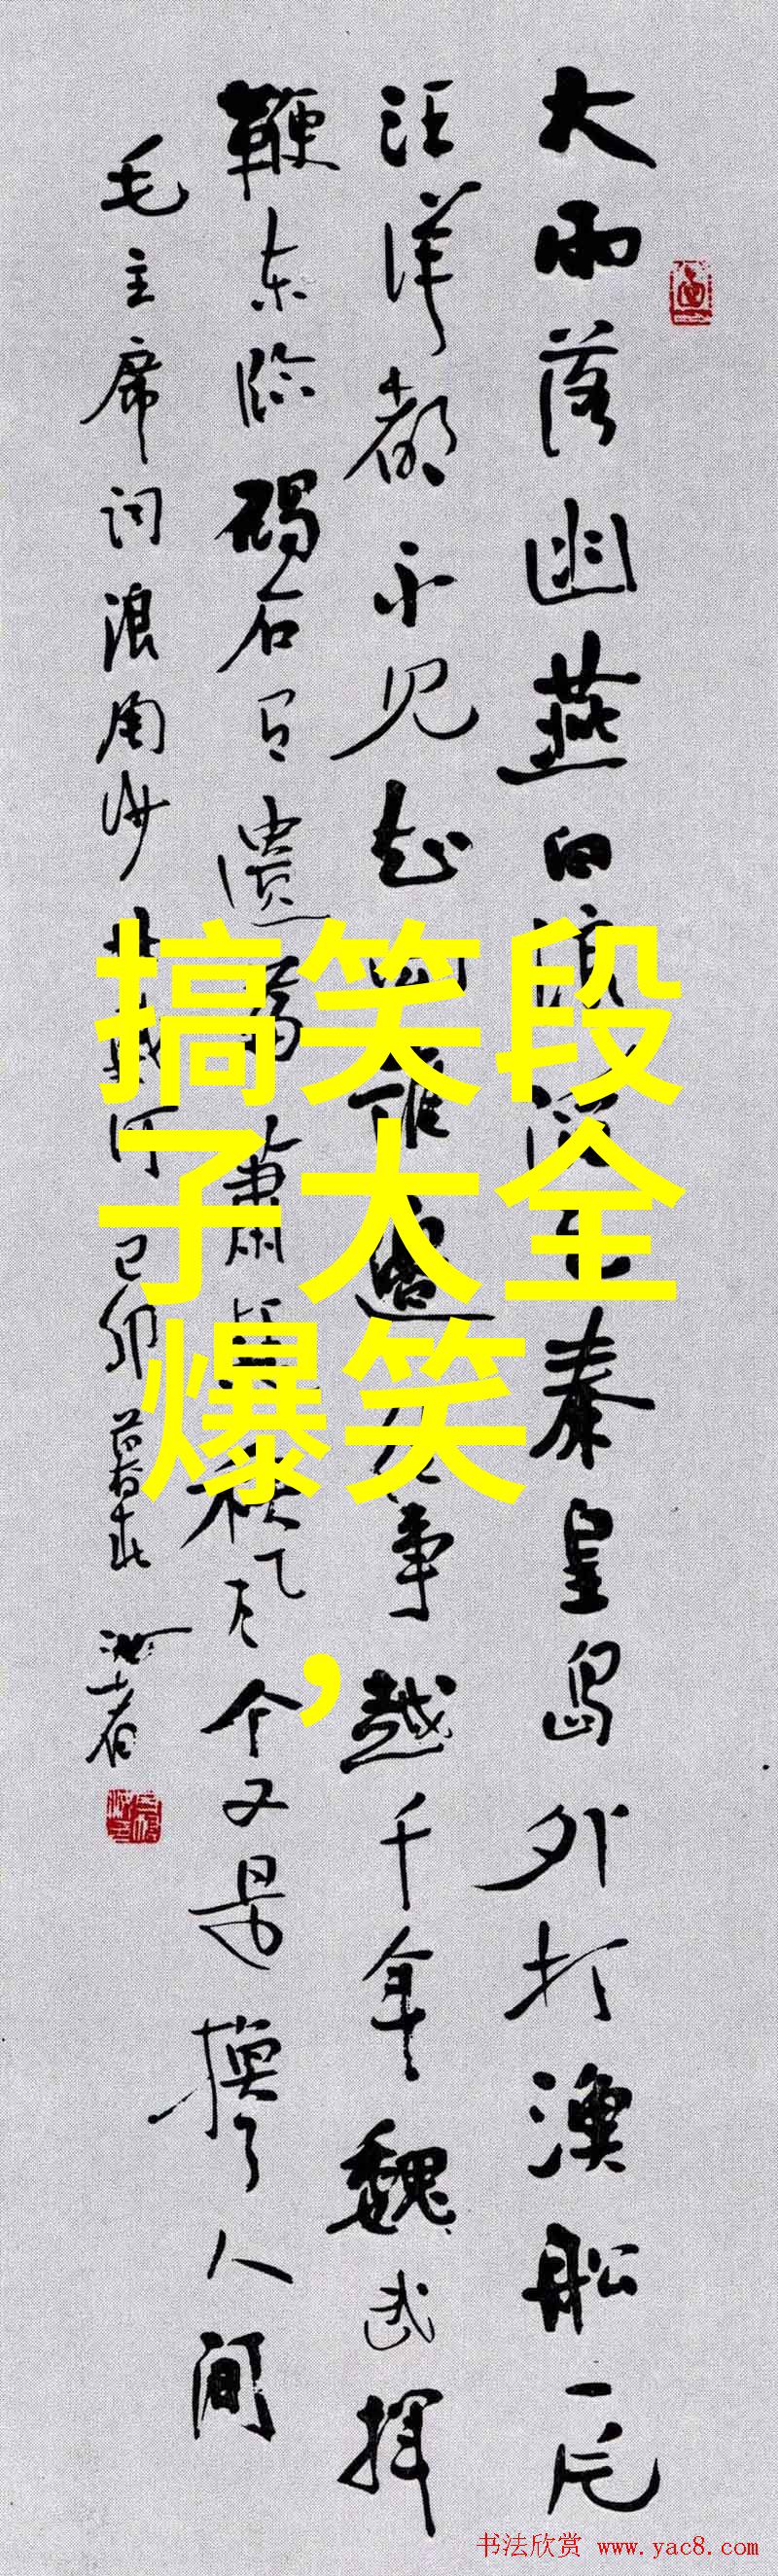 大雨落幽燕白浪滔天秦皇島外打漁船一片
汪洋都不见知向谁邊往事越千年魏武揮
鞭东临碣石有遗篇蕭瑟秋风今又是換了人间
毛主席词浪淘沙北戴河己卯暮春
搞笑段
子大全
爆笑
，
书法欣赏 www.yac8.com